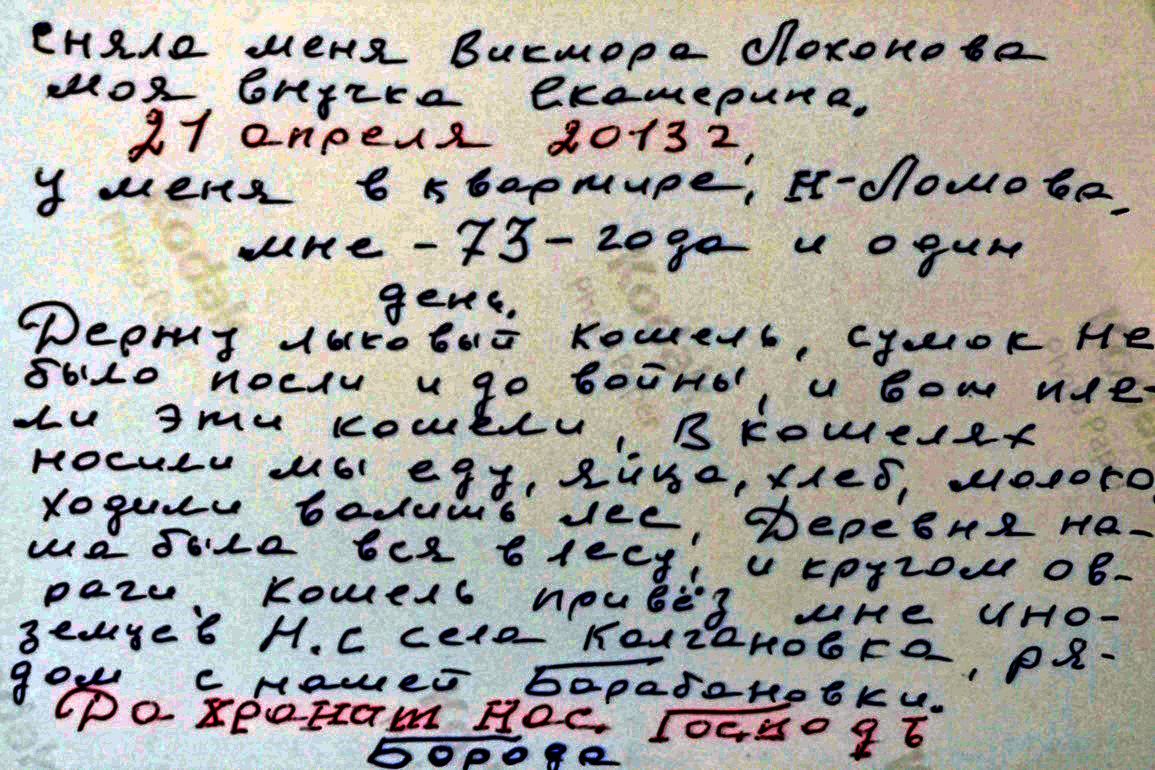 сняла меня Виктора Лохонова
моя внучка Екатерина.
21 апреля 2013 г.
у меня в квартире, Н-Ломова.
мне - 73 - года и один
день.
Держу лыковый кошель, сумок не
было посли и до войны, и вот пле-
ли эти кошели, В кошелях
носили мы еду, яйца, хлеб, молоко,
ходили валить лес, Деревня на-
ша была вся в лесу, и кругом ов-
раги. Кошель привёз мне ино-
земцев Н. с села Колгановка, ря-
дом с нашей Барабановки.
Да хранат Нас Господь
Борода
Kodak
Kodak